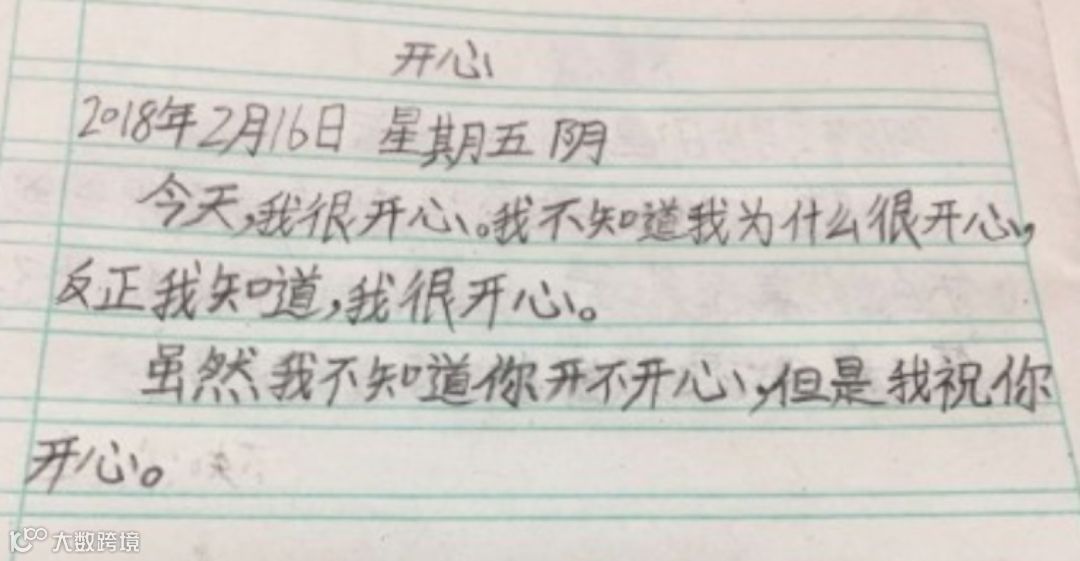 开心
2018年2月16日 星期五 阴
今天,我很开心。我不知道我为什么很开心,
反正我知道,我很开心。
虽然我不知道你开不开心,但是我祝你
开心。
大数跨境